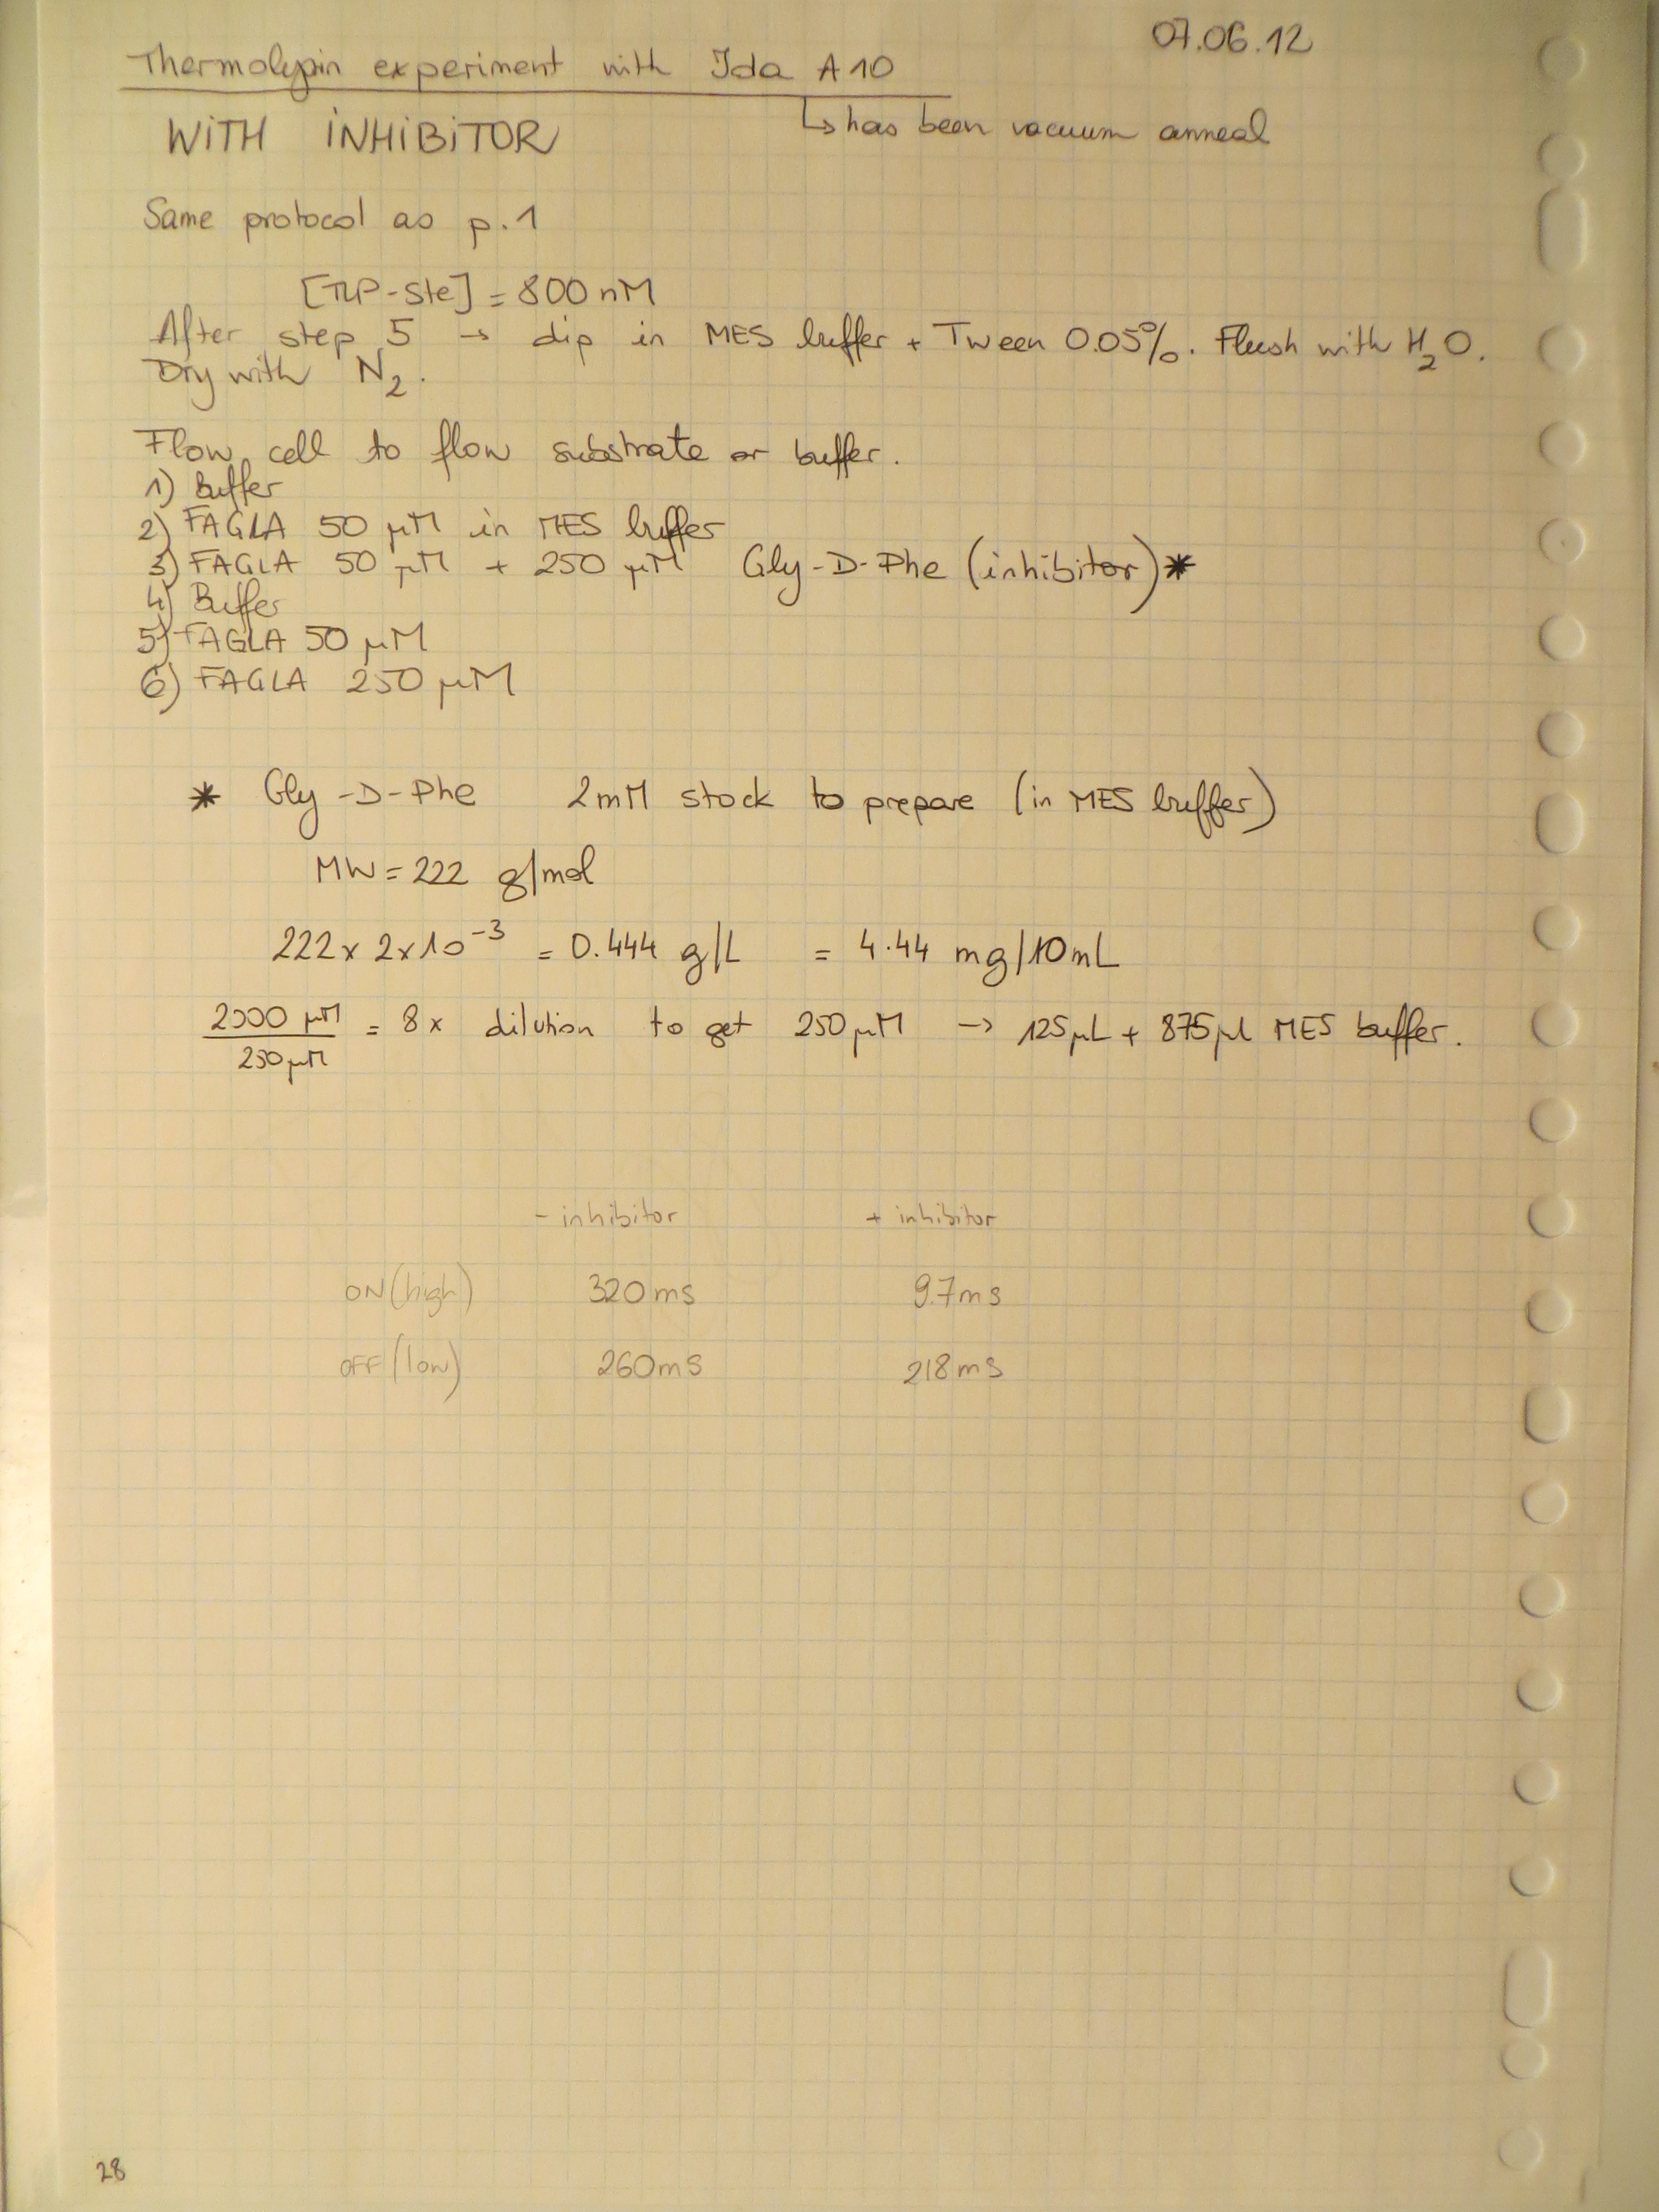 07.06.12
Thermolysin experiment with Ida A10
↳ has been vacuum anneal
WiTH iNHiBiTOR
Same protocol as p.1
[TLP-ste] = 800 nM
After step 5 → dip in MES buffer + Tween 0.05%. Flush with H2O.
Dry with N2.
Flow cell to flow substrate or buffer.
1) Buffer
2) FAGLA 50 μM in MES buffer
3) FAGLA 50 μM + 250 μM Gly-D-Phe (inhibitor)*
4) Buffer
5) FAGLA 50 μM
6) FAGLA 250 μM
* Gly-D-Phe 2mM stock to prepare (in MES buffer)
MW = 222 g/mol
222 x 2x10⁻³ = 0.444 g/L = 4.44 mg/10mL
2000 μM / 250 μM = 8x dilution to get 250 μM → 125 μL + 875 μl MES buffer.
- inhibitor + inhibitor
ON (high) 320 ms 97 ms
OFF (low) 260 ms 218 ms
28